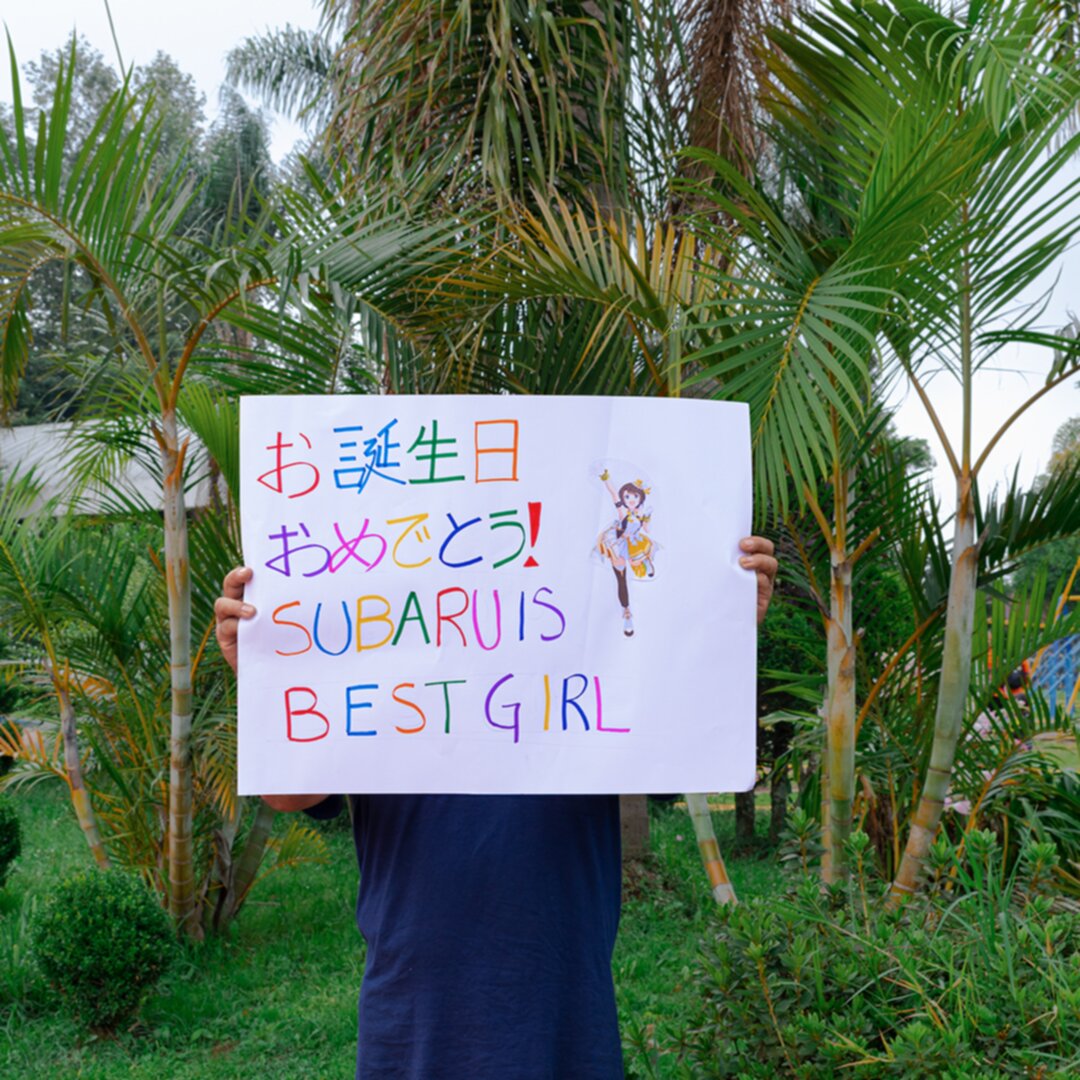 お誕生日
おめでとう!
SUBARU IS
BEST GIRL